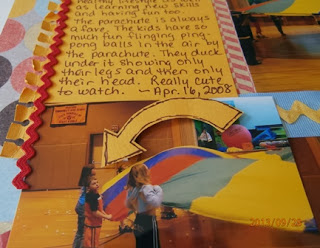 healthy lifestyle
as learning new skills
and having fun too.
The parachute is always
a fave. The kids have so
much fun flinging ping-
pong balls in the air by
the parachute. They duck
under it showing only
their legs and then only
their head. Really cute
to watch. ~ Apr. 16, 2008
2013/09/28